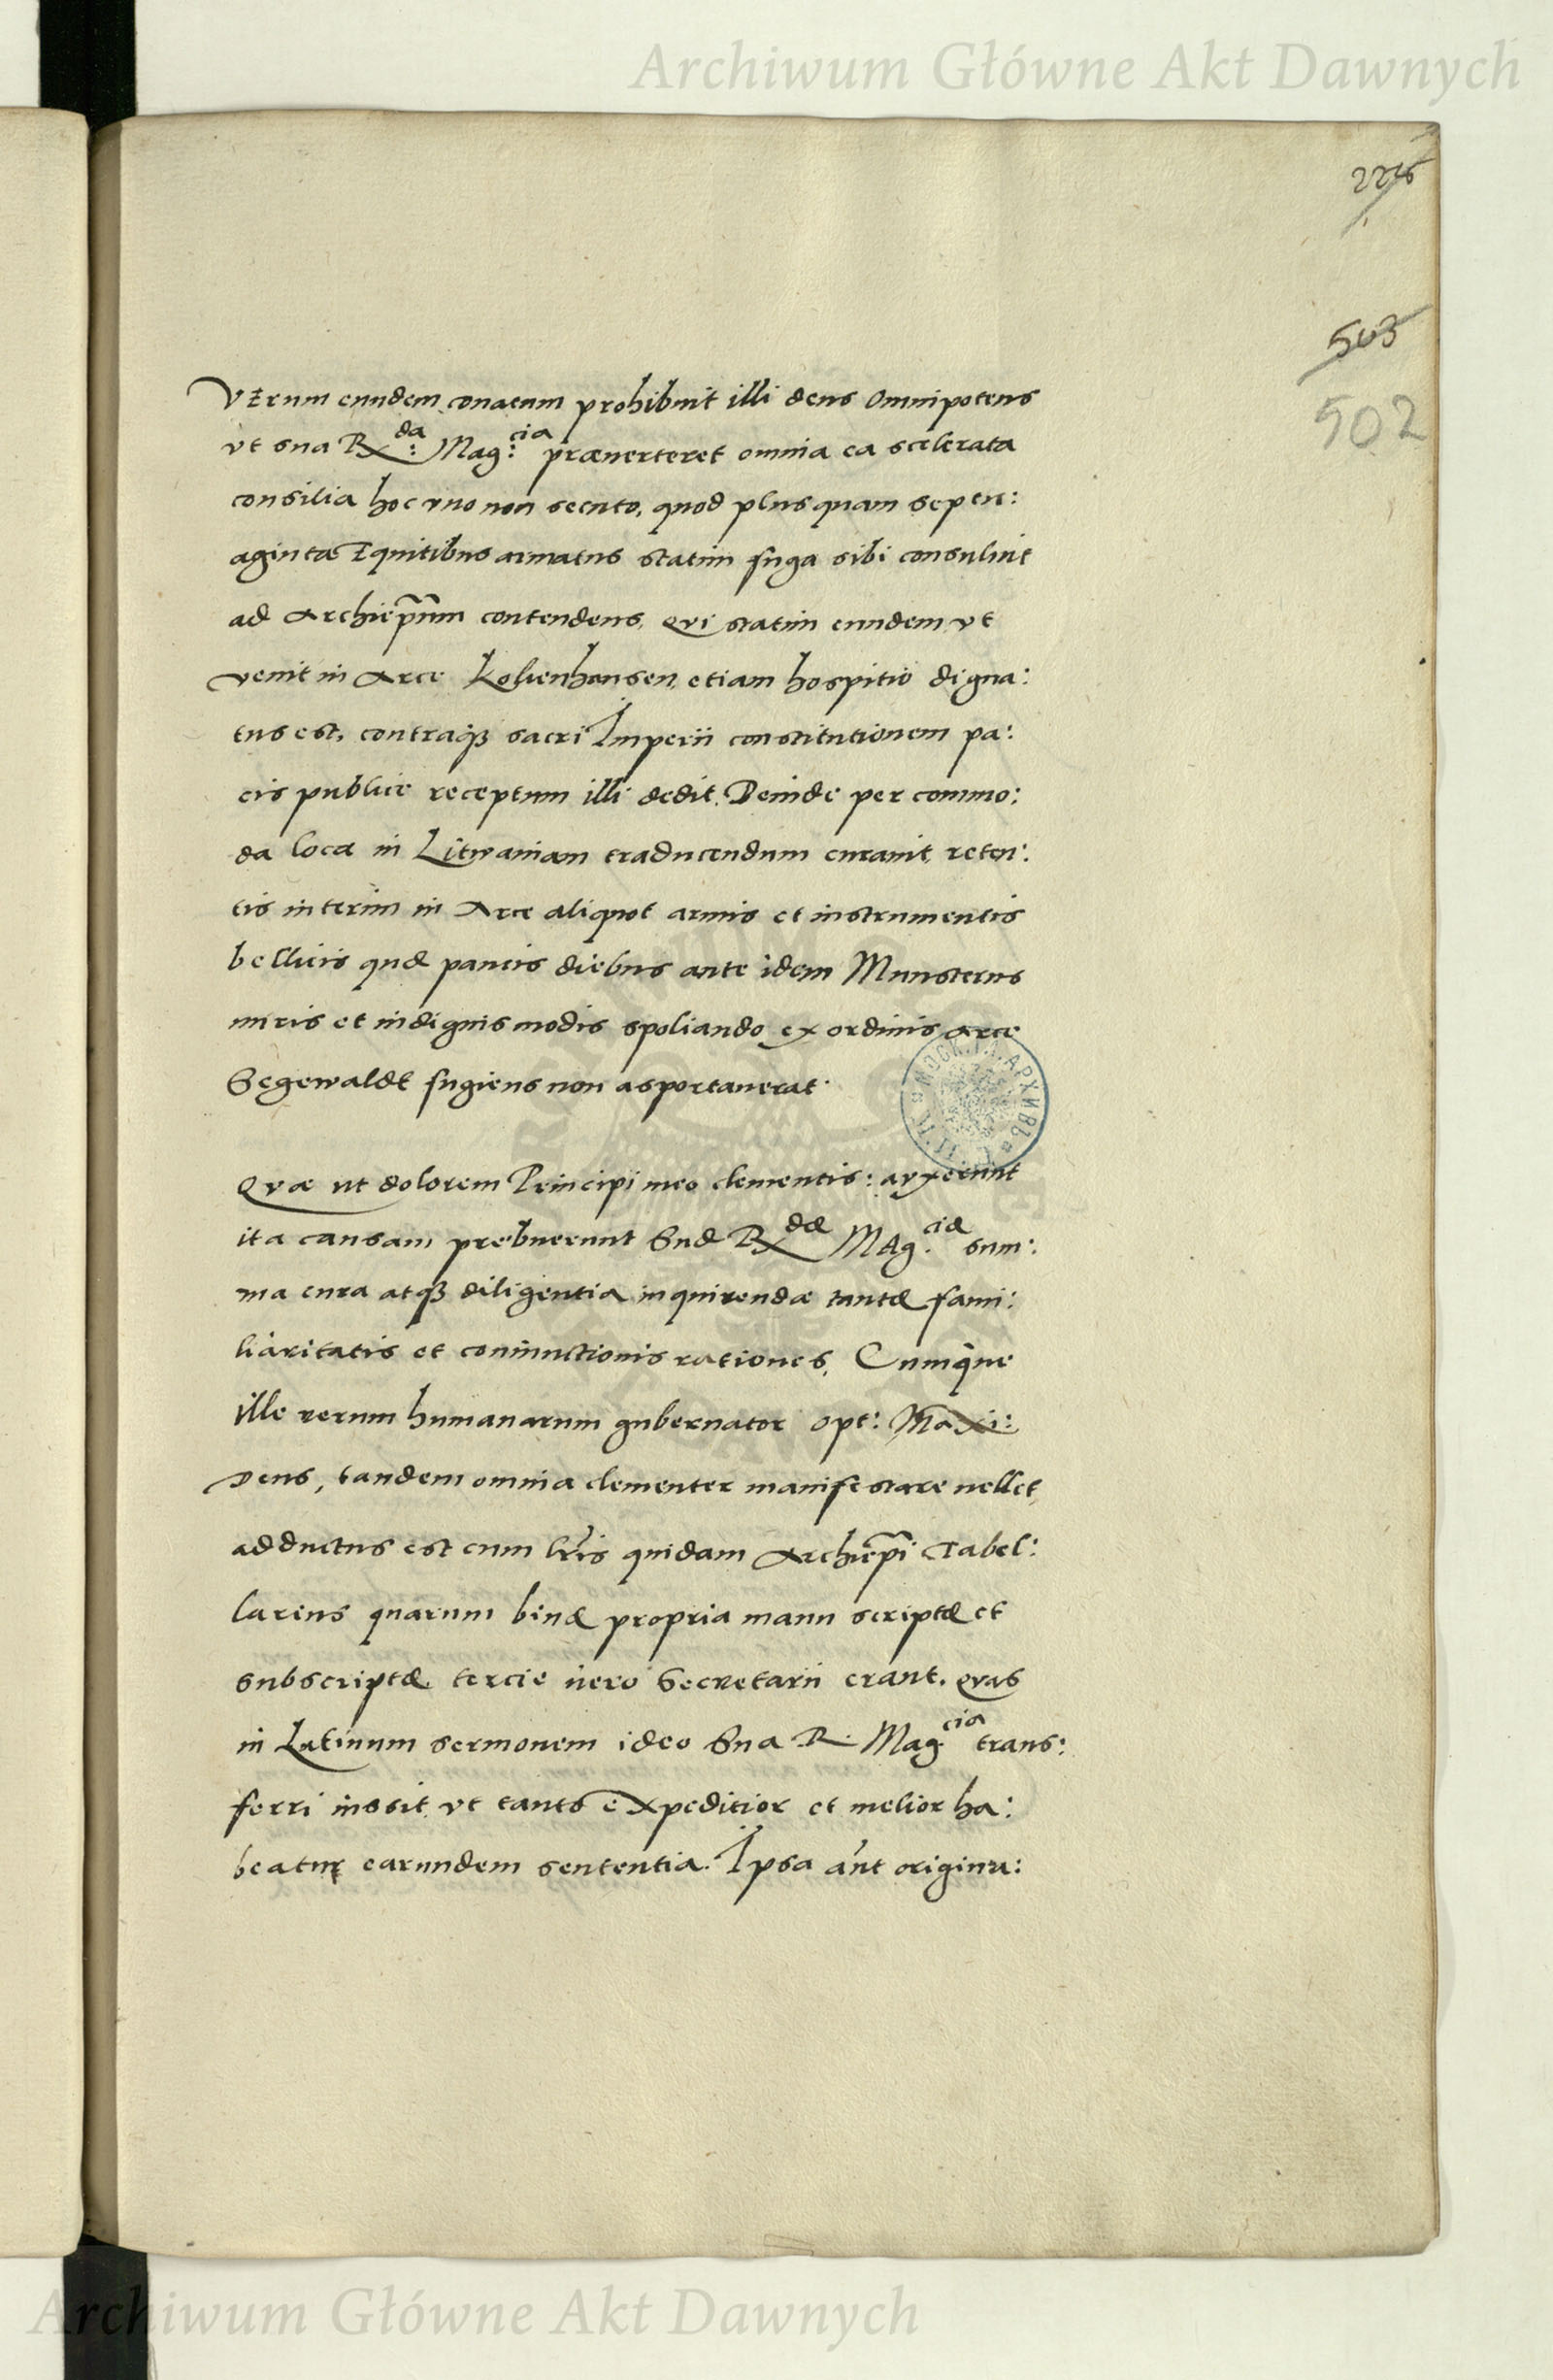 Archiwum Główne Akt Dawnych
226
503
502
Verum eundem conatum prohibuit illi deus Omnipotens
vt sua Rx:da Mag:cia præuerteret omnia ea scelerata
consilia hoc vno non secuto, quod plus quam septu:
aginta Equitibus armatus statim fuga sibi consuluit
ad Archiepũm contendens, Qui statim eundem vt
venit in Arce Kokenhausen, etiam hospitio digna:
tus est, contraq3 sacri Imperii constitutionem pa:
cis publice receptum illi dedit. Deinde per commo:
da loca in Litwaniam traducendum curauit, reten:
tis interim in Arce aliquot armis et instrumentis
bellicis quę paucis diebus ante idem Munsterus
miris et indignis modis spoliando ex ordinis Arce
Segewaldt fugiens non asportauerat.
Quæ ut dolorem Principi meo clementis: auxerunt
ita causam prebuerunt Suę Rxdę Mag:cię sum:
ma cura atq3 diligentia inquirendæ tantę fami:
liaritatis et coniunctionis rationes, Cumq̃ue
ille rerum humanarum gubernator Opt: Maxi:
Deus, tandem omnia clementer manifestare uellet,
adductus est cum lr̃is quidam Archiepĩ Tabel:
larius quarum binę propria manu scriptę et
subscriptę, tercie uero Secretarii erant. Quas
in Latinum sermonem ideo Sua R. Mag.cia trans:
ferri iussit, vt tanto expeditior et melior ha:
beatur earundem sententia. Ipsa aũt origina:
МОСК. ГЛ. АРХИВЪ
Archiwum Główne Akt Dawnych